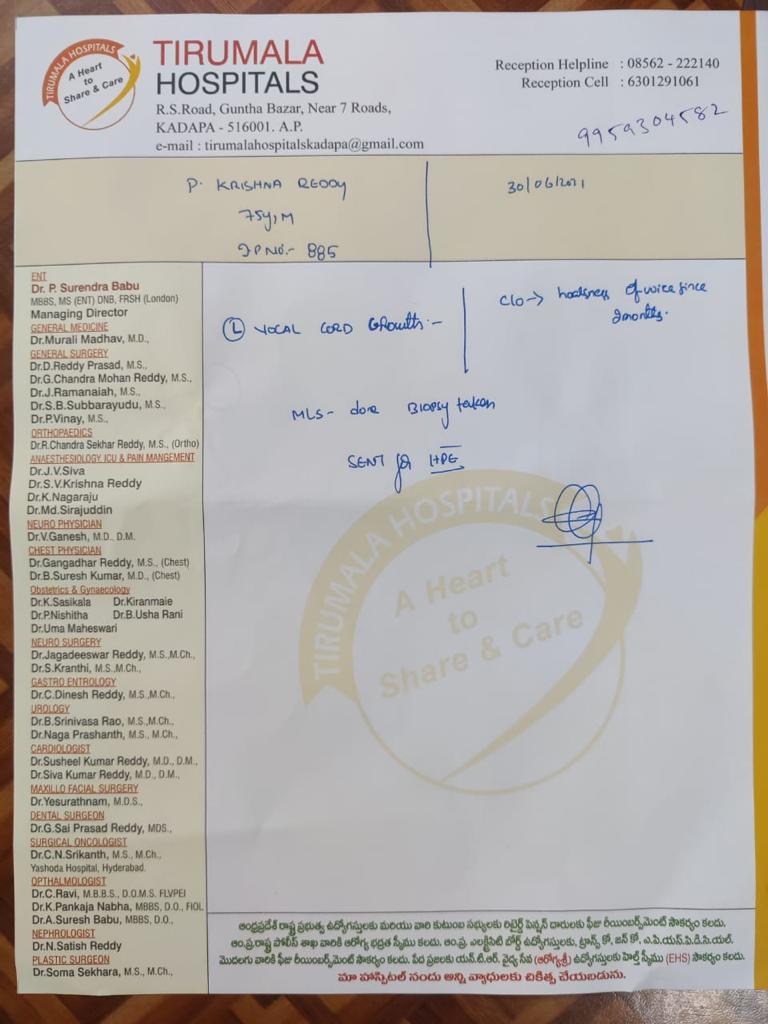 TIRUMALA HOSPITALS
A Heart
to
Share & Care
TIRUMALA
HOSPITALS
R.S.Road, Guntha Bazar, Near 7 Roads,
KADAPA - 516001. A.P.
e-mail : tirumalahospitalskadapa@gmail.com
Reception Helpline : 08562 - 222140
Reception Cell : 6301291061
9959304582
P. KRISHNA REDDY
75y, M
IP No:- 885
30/06/2021
ENT
Dr. P. Surendra Babu
MBBS, MS (ENT) DNB, FRSH (London)
Managing Director
GENERAL MEDICINE
Dr.Murali Madhav, M.D.,
GENERAL SURGERY
Dr.D.Reddy Prasad, M.S.,
Dr.G.Chandra Mohan Reddy, M.S.,
Dr.J.Ramanaiah, M.S.,
Dr.S.B.Subbarayudu, M.S.,
Dr.P.Vinay, M.S.,
ORTHOPAEDICS
Dr.R.Chandra Sekhar Reddy, M.S., (Ortho)
ANAESTHESIOLOGY, ICU & PAIN MANGEMENT
Dr.J.V.Siva
Dr.S.V.Krishna Reddy
Dr.K.Nagaraju
Dr.Md.Sirajuddin
NEURO PHYSICIAN
Dr.V.Ganesh, M.D., D.M.
CHEST PHYSICIAN
Dr.Gangadhar Reddy, M.S., (Chest)
Dr.B.Suresh Kumar, M.D., (Chest)
Obstetrics & Gynaecology
Dr.K.Sasikala Dr.Kiranmaie
Dr.P.Nishitha Dr.B.Usha Rani
Dr.Uma Maheswari
NEURO SURGERY
Dr.Jagadeeswar Reddy, M.S.,M.Ch.,
Dr.S.Kranthi, M.S.,M.Ch.,
GASTRO ENTROLOGY
Dr.C.Dinesh Reddy, M.S.,M.Ch.,
UROLOGY
Dr.B.Srinivasa Rao, M.S.,M.Ch.,
Dr.Naga Prashanth, M.S., M.Ch.,
CARDIOLOGIST
Dr.Susheel Kumar Reddy, M.D., D.M.,
Dr.Siva Kumar Reddy, M.D., D.M.,
MAXILLO FACIAL SURGERY
Dr.Yesurathnam, M.D.S.,
DENTAL SURGEON
Dr.G.Sai Prasad Reddy, MDS.,
SURGICAL ONCOLOGIST
Dr.C.N.Srikanth, M.S., M.Ch.,
Yashoda Hospital, Hyderabad.
OPTHALMOLOGIST
Dr.C.Ravi, M.B.B.S., D.O.M.S. FLVPEI
Dr.K.Pankaja Nabha, MBBS, D.O., FIOL
Dr.A.Suresh Babu, MBBS, D.O.,
NEPHROLOGIST
Dr.N.Satish Reddy
PLASTIC SURGEON
Dr.Soma Sekhara, M.S., M.Ch.,
C/O → hoarsness of voice since
2months.
(L) VOCAL CORD GROWTH :-
MLS - done Biopsy taken
SENT for HPE
TIRUMALA HOSPITALS
A Heart
to
Share & Care
ఆంధ్రప్రదేశ్ రాష్ట్ర ప్రభుత్వ ఉద్యోగస్తులకు మరియు వారి కుటుంబ సభ్యులకు రిటైర్డ్ పెన్షన్ దారులకు ఫీజు రీయింబర్స్‌మెంట్ సౌకర్యం కలదు.
ఆం.ప్ర.రాష్ట్ర పోలీస్ శాఖ వారికి ఆరోగ్య భద్రత స్కీము కలదు. ఆం.ప్ర. ఎలక్ట్రిసిటి బోర్డ్ ఉద్యోగస్తులకు, ట్రాన్స్ కో, జన్ కో, ఎ.పి.యస్.పి.డి.సి.యల్.
మొదలగు వారికి ఫీజు రీయింబర్స్‌మెంట్ సౌకర్యం కలదు. పేద ప్రజలకు యన్.టి.ఆర్. వైద్య సేవ (ఆరోగ్యశ్రీ) ఉద్యోగస్తులకు హెల్త్ స్కీము (EHS) సౌకర్యం కలదు.
మా హాస్పిటల్ నందు అన్ని వ్యాధులకు చికిత్స చేయబడును.